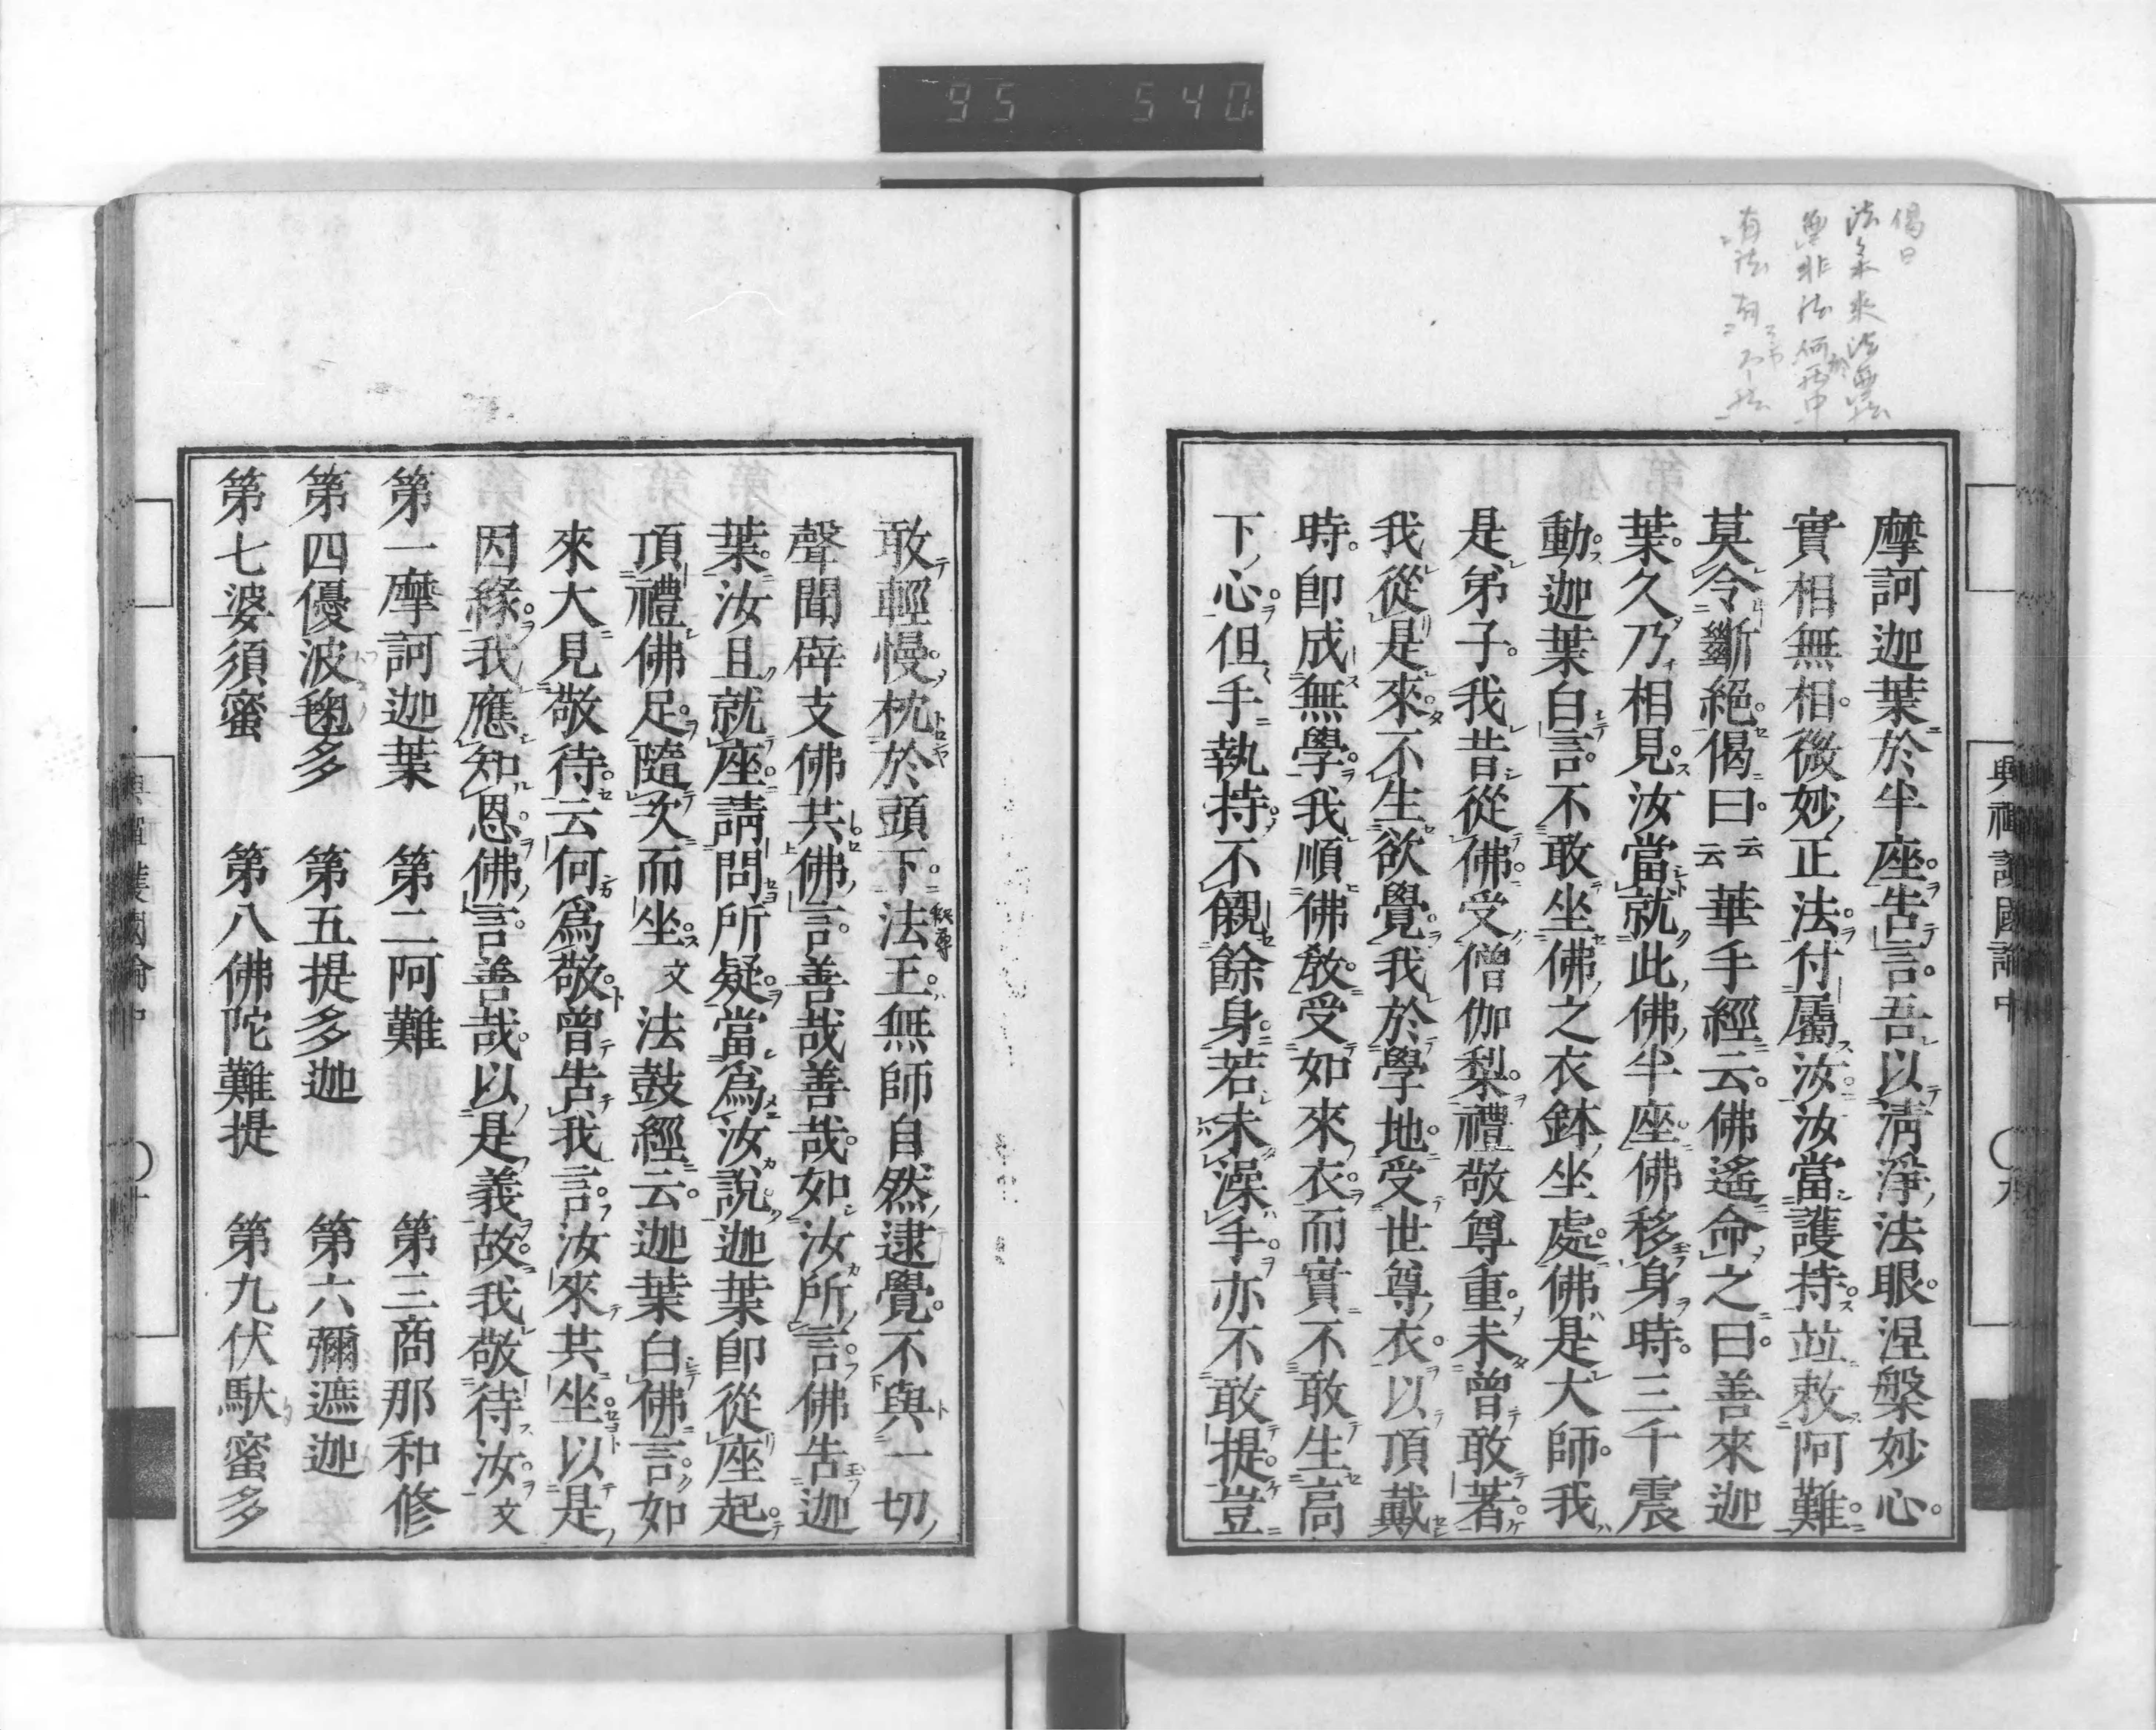 95 540
偈曰
法本來法無法
無非法何於一法中
有法有不法
摩訶迦葉於半座告言吾以淸淨法眼涅槃妙心
實相無相微妙正法付屬汝汝當護持並敕阿難
莫令斷絕偈曰云云華手經云佛遙命之曰善來迦
葉久乃相見汝當就此佛半座佛移身時三千震
動迦葉白言不敢坐佛之衣鉢坐處佛是大師我
是弟子我昔從佛受僧伽梨禮敬尊重未曾敢著
我從是來不生欲覺我於學地受世尊衣以頂戴
時卽成無學我順佛敎受如來衣而實不敢生高
下心但手執持不儭餘身若未澡手亦不敢提豈
興禪護國論中 〇九
敢輕慢枕於頭下法王無師自然逮覺不與一切
聲聞辟支佛共佛言善哉善哉如汝所言佛告迦
葉汝且就座請問所疑當爲汝說迦葉卽從座起
頂禮佛足隨次而坐文法鼓經云迦葉白佛言如
來大見敬待云何爲敬曾告我言汝來共坐以是
因緣我應知恩佛言善哉以是義故我敬待汝文
第一摩訶迦葉 第二阿難 第三商那和修
第四優波毱多 第五提多迦 第六彌遮迦
第七婆須蜜 第八佛陀難提 第九伏馱蜜多
興禪護國論中 〇十